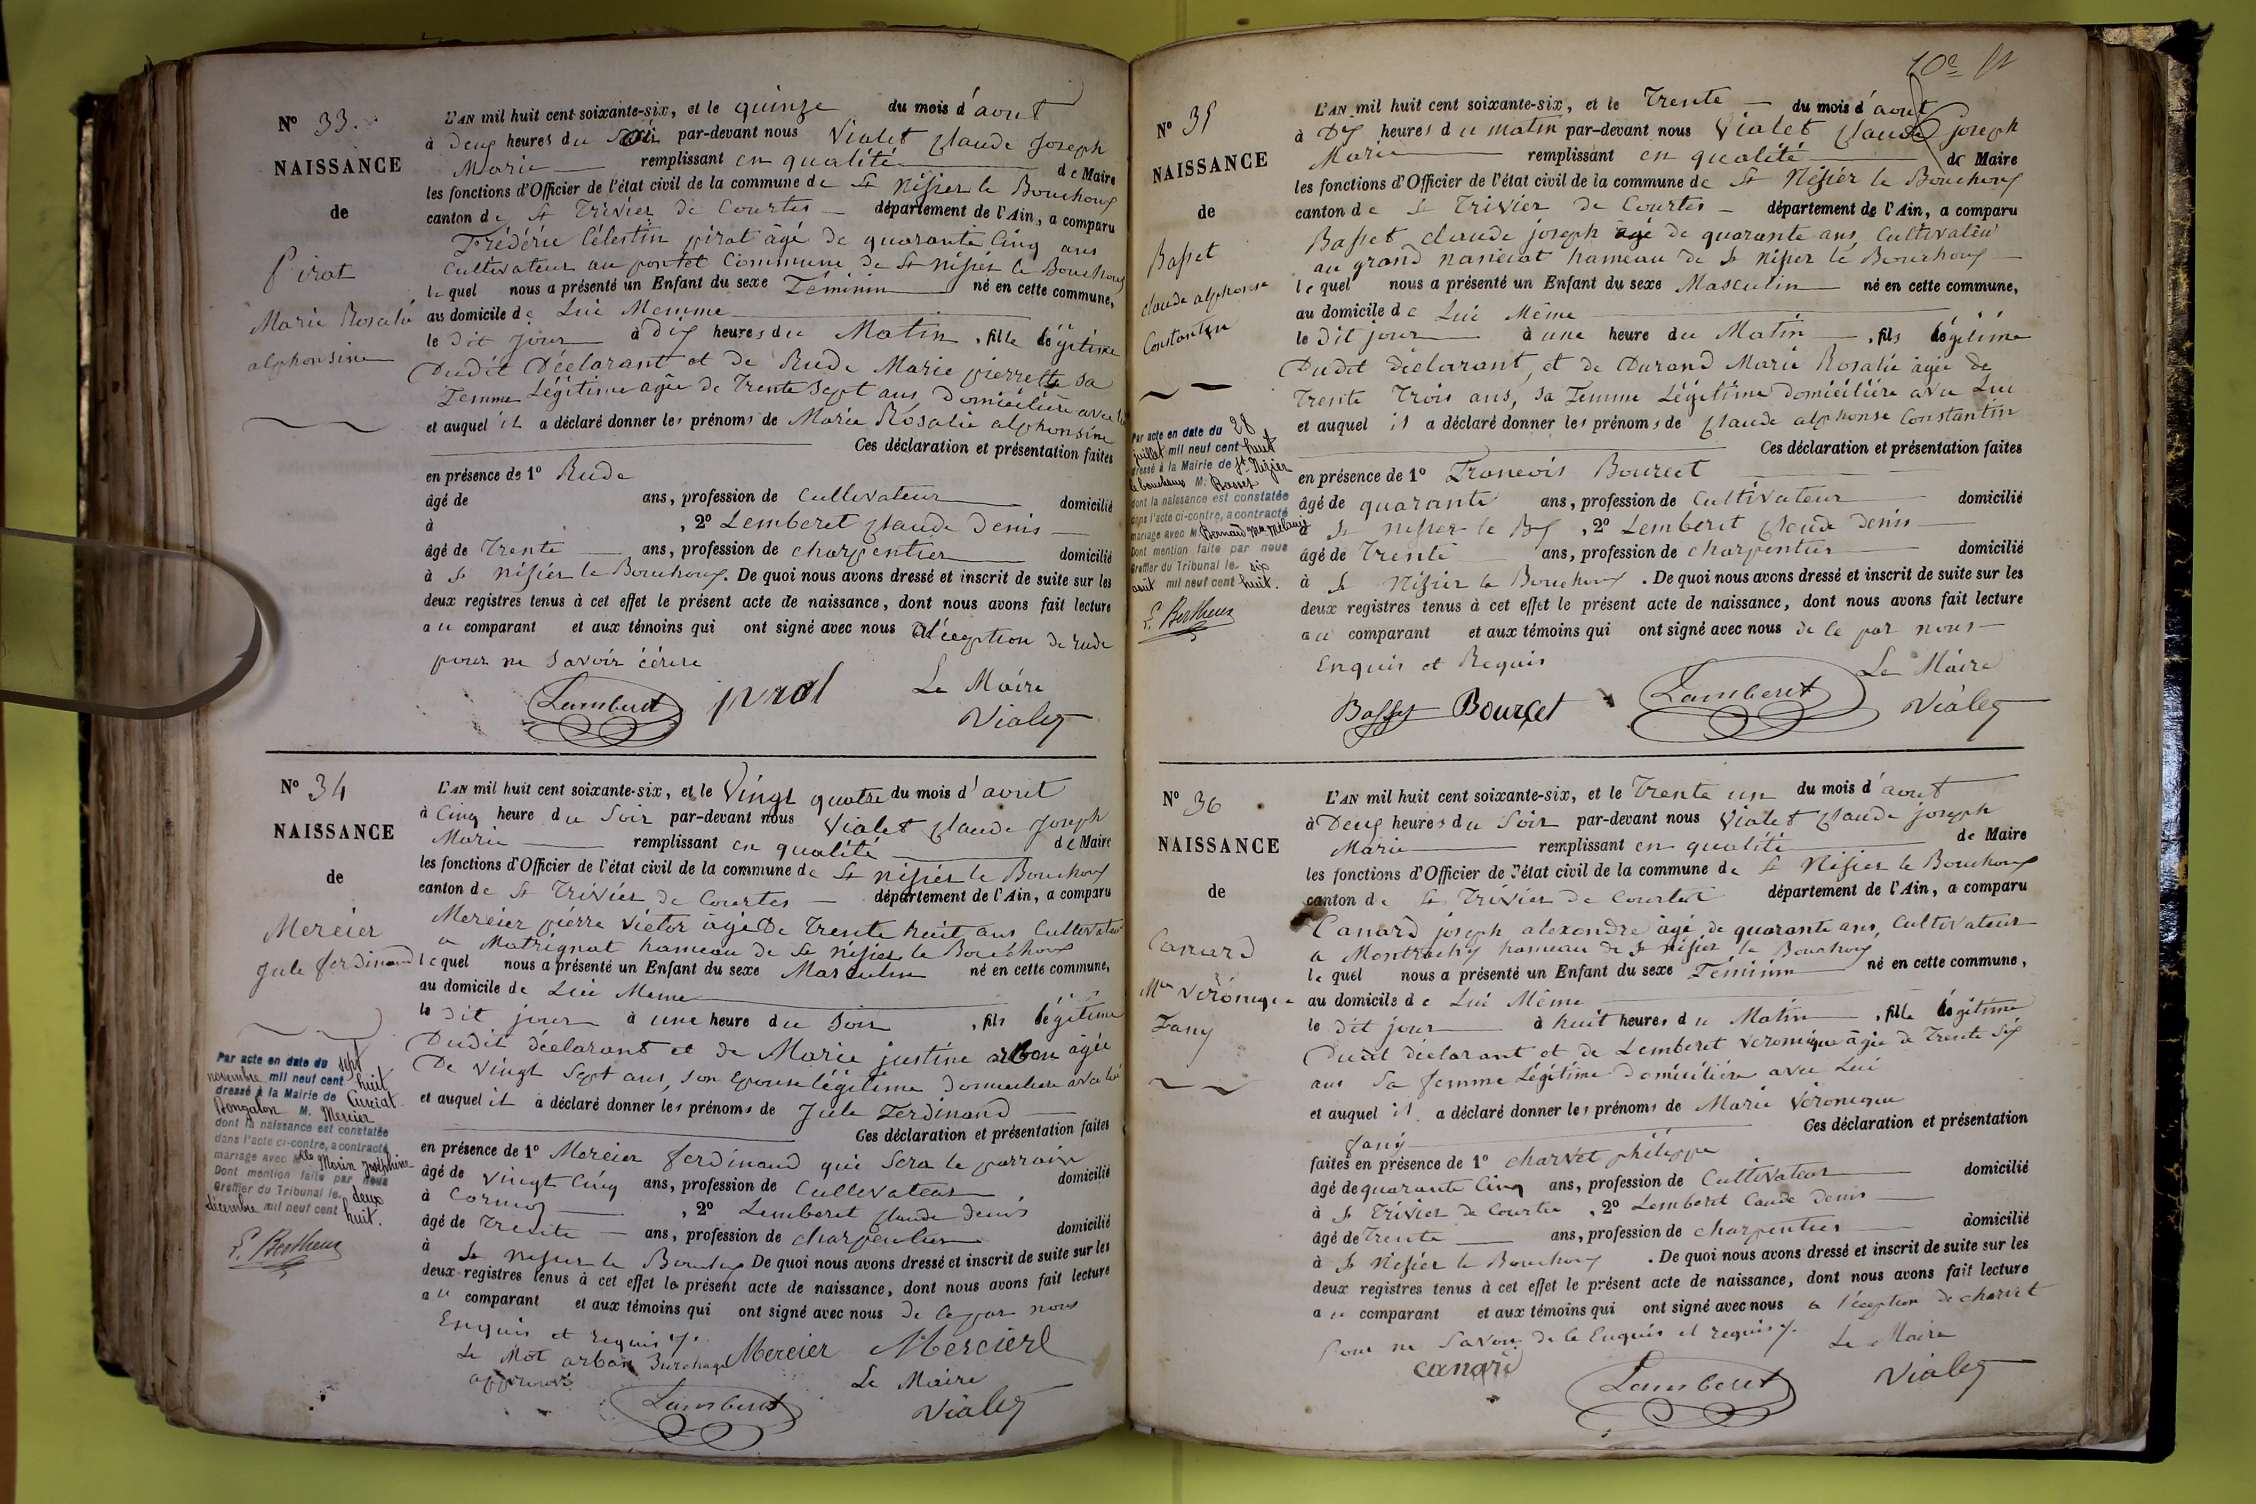 N° 33.
NAISSANCE
de
Pirat
Marie Rosalie
alphonsine
L'AN mil huit cent soixante-six, et le quinze du mois d'aout
à Deux heures du Soir par-devant nous Vialet Claude Joseph
Marie remplissant en qualité de Maire
les fonctions d'Officier de l'état civil de la commune de St Nisier le Bouchoux
canton de St Trivier de Courtes département de l'Ain, a comparu
Frédéric Célestin pirat âgé de quarante Cinq ans
Cultivateur au pontet Commune de St nisier le Bouchoux
lequel nous a présenté un Enfant du sexe Féminin né en cette commune,
au domicile de Lui Memme
le dit jour à Dix heures du Matin, fille légitime
Dudit Déclarant et de Rude Marie pierrette sa
Femme Légitime agée de Trente sept ans Domiciliere avec lui
et auquel il a déclaré donner les prénoms de Marie Rosalie alphonsine
Ces déclaration et présentation faites
en présence de 1° Rude
âgé de ans, profession de Cultivateur domicilié
à , 2° Lemberet Claude Denis
âgé de Trente ans, profession de charpentier domicilié
à St Nisier le Bouchoux. De quoi nous avons dressé et inscrit de suite sur les
deux registres tenus à cet effet le présent acte de naissance, dont nous avons fait lecture
au comparant et aux témoins qui ont signé avec nous à l'éception de rude
pour ne Savoir écrire
Lamberet pirat Le Maire
Vialet
N° 34
NAISSANCE
de
Mercier
Jule ferdinand
Par acte en date du sept
novembre mil neuf cent huit
dressé à la Mairie de Curciat
Dongalon M. Mercier
dont la naissance est constatée
dans l'acte ci-contre, a contracté
mariage avec Mlle Morin Joséphine
Dont mention faite par nous
Greffier du Tribunal le deux
décembre mil neuf cent huit.
L'AN mil huit cent soixante-six, et le Vingt quatre du mois d'aout
à Cinq heure du Soir par-devant nous Vialet Claude Joseph
Marie remplissant en qualité de Maire
les fonctions d'Officier de l'état civil de la commune de St Nisier le Bouchoux
canton de St Trivier de Courtes département de l'Ain, a comparu
Mercier pierre victor âgé De Trente huit ans Cultivateur
a Matrignat hameau de St nisier le Bouchoux
lequel nous a présenté un Enfant du sexe Masculin né en cette commune,
au domicile de Lui Meme
le dit jour à une heure du Soir, fils légitime
Dudit déclarant et de Marie justine arban âgée
De vingt Sept ans, son Epouse légitime Domiciliere avec lui
et auquel il a déclaré donner les prénoms de Jule Ferdinand
Ces déclaration et présentation faites
en présence de 1° Mercier ferdinand qui Sera le parrain
âgé de vingt Cinq ans, profession de Cultivateur domicilié
à Cormoz , 2° Lemberet Claude denis
âgé de Trente ans, profession de charpentier domicilié
à St Nisier le Bouchoux De quoi nous avons dressé et inscrit de suite sur les
deux registres tenus à cet effet le présent acte de naissance, dont nous avons fait lecture
au comparant et aux témoins qui ont signé avec nous de Ce par nous
Enquis et requis
Le Mot arban Surchargé Mercier Mercier
approuvé Le Maire
Lamberet Vialet
N° 35
NAISSANCE
de
Basset
claude alphonse
Constantin
Par acte en date du 28
juillet mil neuf cent huit
dressé à la Mairie de St Nizier
le bouchoux M. Basset
dont la naissance est constatée
dans l'acte ci-contre, a contracté
mariage avec Bernard Mie Mélanie
Dont mention faite par nous
Greffier du Tribunal le six
août mil neuf cent huit.
L'AN mil huit cent soixante-six, et le Trente du mois d'aout
à Dix heures du matin par-devant nous Vialet Claude joseph
Marie remplissant en qualité de Maire
les fonctions d'Officier de l'état civil de la commune de St Nisier le Bouchoux
canton de St Trivier de Courtes département de l'Ain, a comparu
Basset claude joseph agé de quarante ans, Cultivateur
au grand nanciat hameau de St nisier le Bouchoux
lequel nous a présenté un Enfant du sexe Masculin né en cette commune,
au domicile de Lui Même
le dit jour à une heure du Matin, fils légitime
Dudit déclarant, et de Durand Marie Rosalie agée de
Trente Trois ans, sa Femme Légitime domiciliére avec Lui
et auquel il a déclaré donner les prénoms de Claude alphonse Constantin
Ces déclaration et présentation faites
en présence de 1° Francois Bourcet
âgé de quarante ans, profession de Cultivateur domicilié
à St nisier le Bx , 2° Lemberet Claude denis
âgé de Trente ans, profession de charpentier domicilié
à St Nisier le Bouchoux. De quoi nous avons dressé et inscrit de suite sur les
deux registres tenus à cet effet le présent acte de naissance, dont nous avons fait lecture
au comparant et aux témoins qui ont signé avec nous de Ce par nous
Enquis et Requis Le Maire
Basset Bourcet Lamberet Vialet
N° 36
NAISSANCE
de
Canard
Mie Véronique
Fany
L'AN mil huit cent soixante-six, et le Trente un du mois d'aout
à Deux heures du Soir par-devant nous Vialet Claude joseph
Marie remplissant en qualité de Maire
les fonctions d'Officier de l'état civil de la commune de St Nisier le Bouchoux
canton de St Trivier de Courtes département de l'Ain, a comparu
Canard joseph alexandre agé de quarante ans, Cultivateur
a Montrachy hameau de St nisier le Bouchoux
lequel nous a présenté un Enfant du sexe Féminin né en cette commune,
au domicile de Lui Même
le dit jour à huit heures du Matin, fille légitime
Dudit déclarant et de Lemberet veronique âgée de Trente Six
ans Sa femme Légitime domiciliére avec Lui
et auquel il a déclaré donner les prénoms de Marie Veronique
Fany Ces déclaration et présentation
faites en présence de 1° charvet philippe
âgé de quarante Cinq ans, profession de Cultivateur domicilié
à St Trivier de Courtes , 2° Lemberet Caude Denis
âgé de Trente ans, profession de charpentier domicilié
à St Nisier le Bouchoux. De quoi nous avons dressé et inscrit de suite sur les
deux registres tenus à cet effet le présent acte de naissance, dont nous avons fait lecture
au comparant et aux témoins qui ont signé avec nous a l'éception de charvet
Pour ne Savoir de Ce Enquis et requis Le Maire
canard Lamberet Vialet